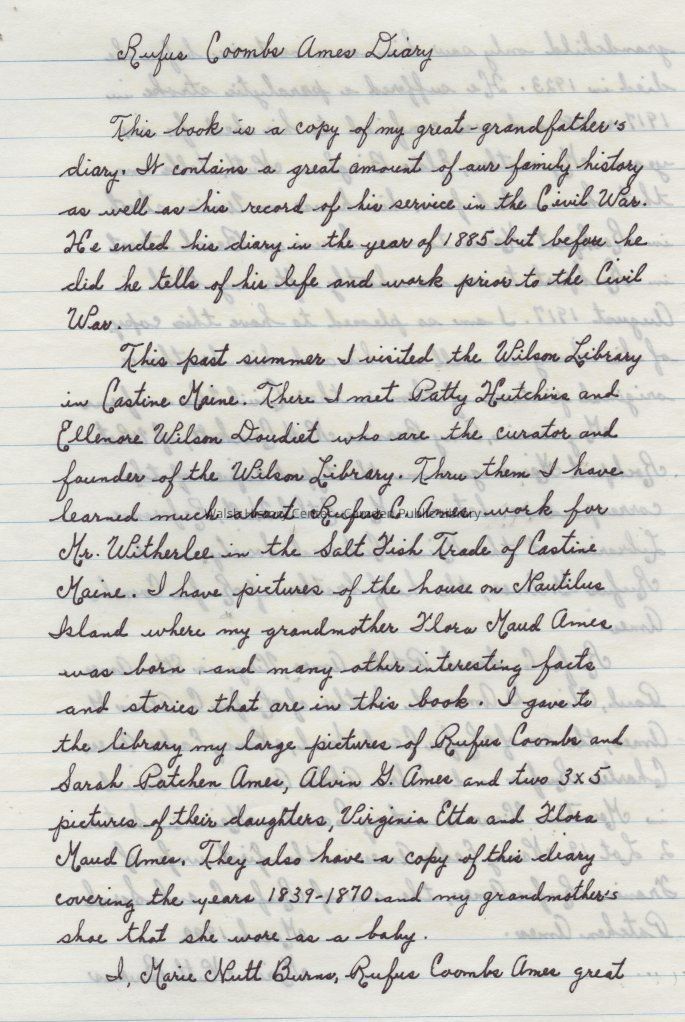 Rufus Coombs Ames Diary
This book is a copy of my great-grandfather's
diary. It contains a great amount of our family history
as well as his record of his service in the Civil War.
He ended his diary in the year of 1885 but before he
did he tells of his life and work prior to the Civil
War.
This past summer I visited the Wilson Library
in Castine Maine. There I met Patty Hutchins and
Ellenore Wilson Doudiet who are the curator and
founder of the Wilson Library. Thru them I have
learned much about Rufus C. Ames work for
Walsh History Center, Camden Public Library
Mr. Witherlee in the Salt Fish Trade of Castine
Maine. I have pictures of the house on Nautilus
Island where my grandmother Flora Maud Ames
was born and many other interesting facts
and stories that are in this book. I gave to
the library my large pictures of Rufus Coombs and
Sarah Patchen Ames, Alvin G. Ames and two 3x5
pictures of their daughters, Virginia Etta and Flora
Maud Ames. They also have a copy of this diary
covering the years 1839-1870 and my grandmother's
shoe that she wore as a baby.
I, Marie Nutt Burns, Rufus Coombs Ames great